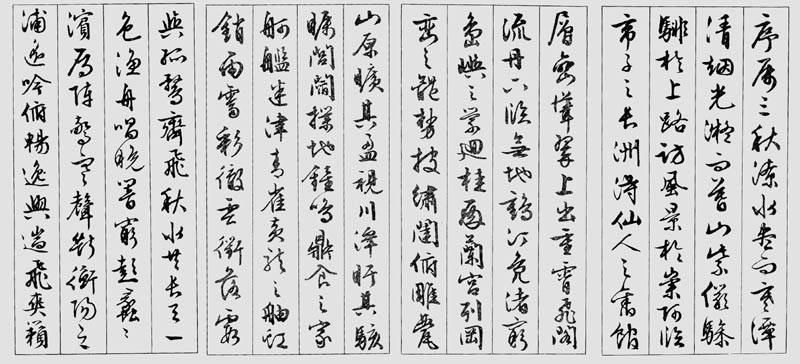 序屬三秋潦水盡而寒潭
清烟光凝而暮山紫儼驂
騑於上路訪風景於崇阿臨
帝子之長洲得仙人之舊館
層巒聳翠上出重霄飛閣
流丹下臨無地鶴汀鳧渚窮
島嶼之縈迴桂殿蘭宮列岡
巒之體勢披繡闥俯雕甍
山原曠其盈視川澤盱其駭
矚閭閻撲地鐘鳴鼎食之家
舸艦迷津青雀黃龍之舳虹
銷雨霽彩徹雲衢落霞
與孤鶩齊飛秋水共長天一
色漁舟唱晚響窮彭蠡之
濱雁陣驚寒聲斷衡陽之
浦遙吟俯暢逸興遄飛爽籟